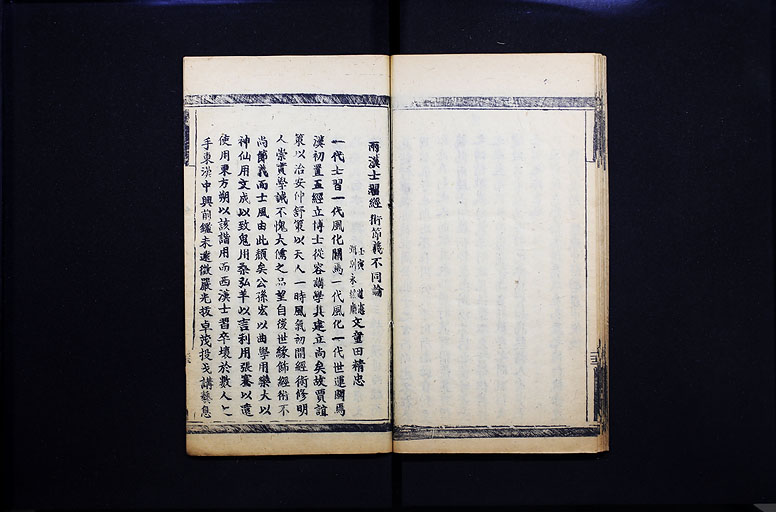 兩漢士習經術節義不同論
壬寅
文童田精忠
一代士習一代風化關焉一代風化一代世運關焉
漢初置五經立博士從容講學其建立尚矣故賈誼
策以治安仲舒策以天人一時風氣初開經術修明
人崇實學誠不愧大儒之品望自後世緣飾經術不
尚節義而士風由此頹矣公孫宏以曲學用欒大以
神仙用文成以致鬼用桑弘羊以言利用張騫以遣
使用東方朔以詼諧用而西漢士習卒壞於數人之
手東漢中興前鑑未遠徵嚴光拔卓茂投戈講藝息